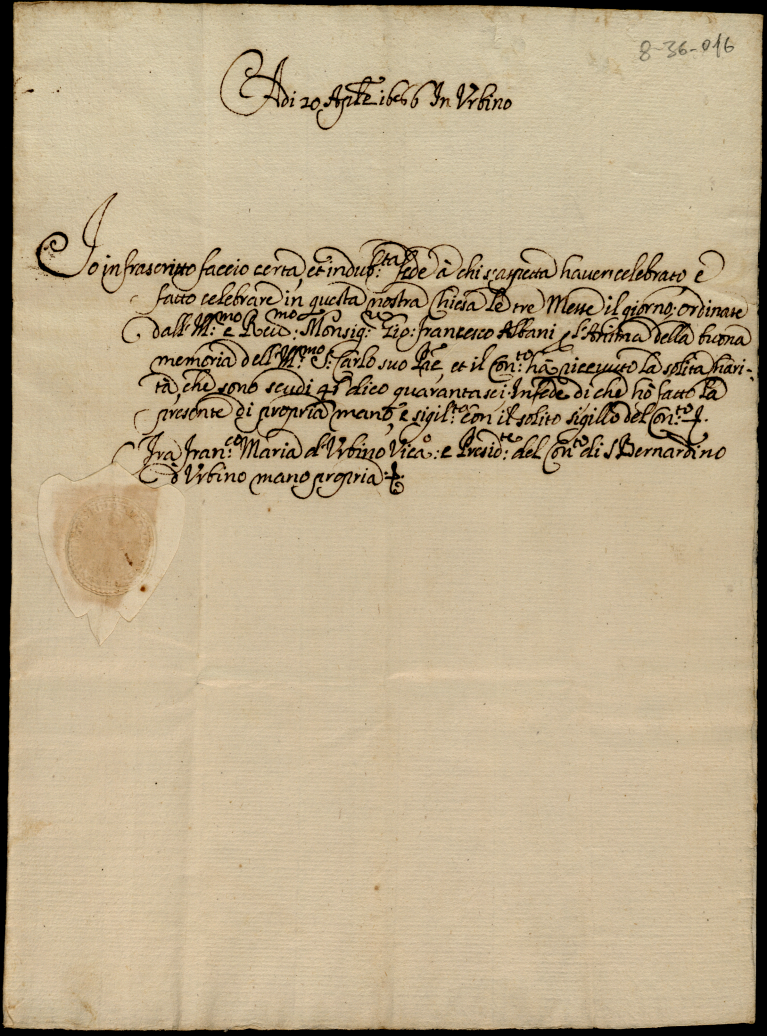 8-36-016
Adi 20 Aprle 1686 In Vrbino
Io infrascritto faccio certa, et indubta: fede à chi s'aspetta haver celebrato, e
fatto celebrare in questa nostra Chiesa le tre Messe il giorno, ordinate
dall' Illmo: e Revdmo: Monsigr: Gio: Francesco Albani p l'Anima della buona
memoria dell' Illmo: Sr: Carlo suo Pre, et il Conto: hà ricevuto la solita Chari-
tà, che sono scudi 46 dico quarantasei. In fede di che hò fatto la
presente di propria mano, e sigilto: con il solito sigillo del Conto:
Fra Franco: Maria d'Vrbino Vico: e Presidte: del Conto: di S Bernardino
d'Vrbino mano propria